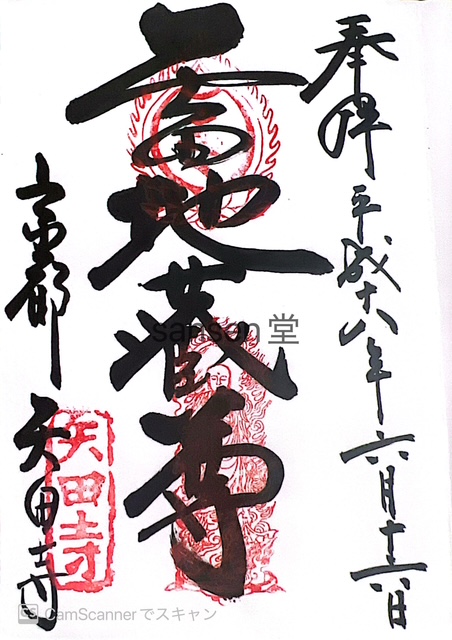 奉拝 平成十八年六月十六日
地蔵尊
京都 矢田寺
矢田寺
sansan 堂
CamScannerでスキャン